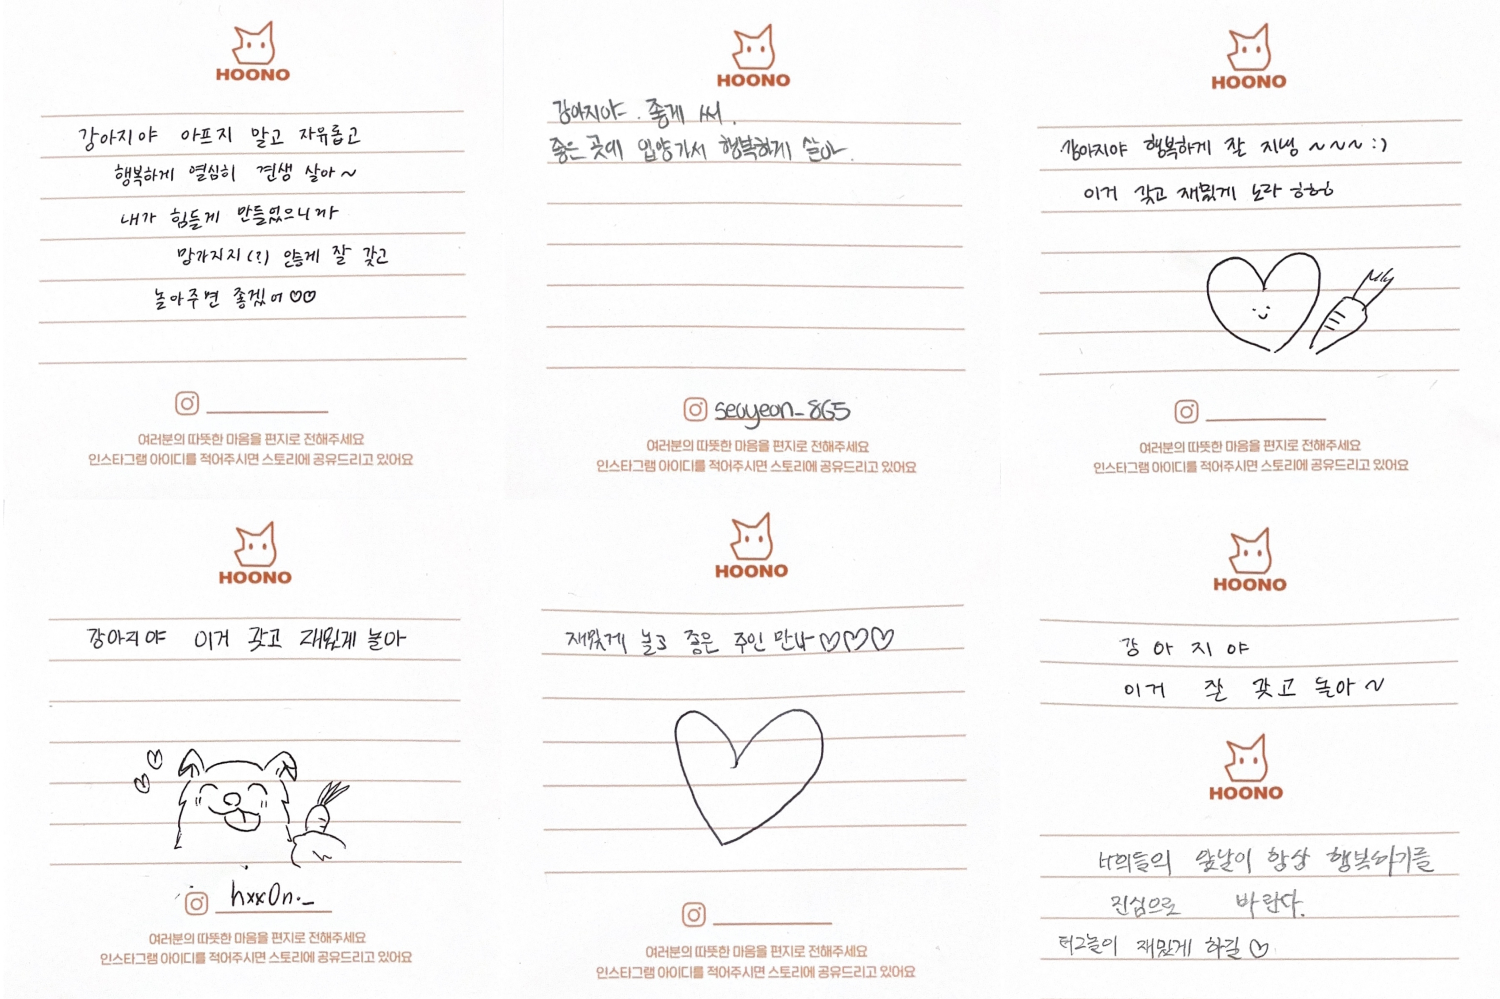 HOONO
강아지야 아프지 말고 자유롭고
행복하게 열심히 견생 살아~
내가 힘들게 만들었으니까
망가지지(?) 않게 잘 갖고
놀아주면 좋겠어♡♡
여러분의 따뜻한 마음을 편지로 전해주세요
인스타그램 아이디를 적어주시면 스토리에 공유드리고 있어요
HOONO
강아지야. 좋게 써.
좋은 곳에 입양가서 행복하게 살아.
seoyeon_865
여러분의 따뜻한 마음을 편지로 전해주세요
인스타그램 아이디를 적어주시면 스토리에 공유드리고 있어요
HOONO
강아지야 행복하게 잘 지냉 ~~~:)
이거 갖고 재밌게 노라 ㅎㅎㅎ
여러분의 따뜻한 마음을 편지로 전해주세요
인스타그램 아이디를 적어주시면 스토리에 공유드리고 있어요
HOONO
강아지야 이거 갖고 재밌게 놀아
hxx0n._
여러분의 따뜻한 마음을 편지로 전해주세요
인스타그램 아이디를 적어주시면 스토리에 공유드리고 있어요
HOONO
재밌게 놀고 좋은 주인 만나♡♡♡
여러분의 따뜻한 마음을 편지로 전해주세요
인스타그램 아이디를 적어주시면 스토리에 공유드리고 있어요
HOONO
강아지야
이거 잘 갖고 놀아~
HOONO
너희들의 앞날이 항상 행복하기를
진심으로 바란다.
터그놀이 재밌게 하길♡